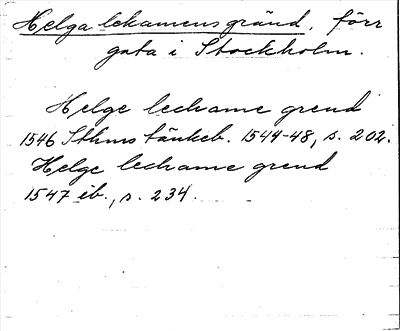 Helga lekamens gränd, förr
gata i Stockholm.
Helge lechame grend
1546 Sthms tänkeb. 1544-48, s. 202.
Helge lechame grend
1547 ib., s. 234.